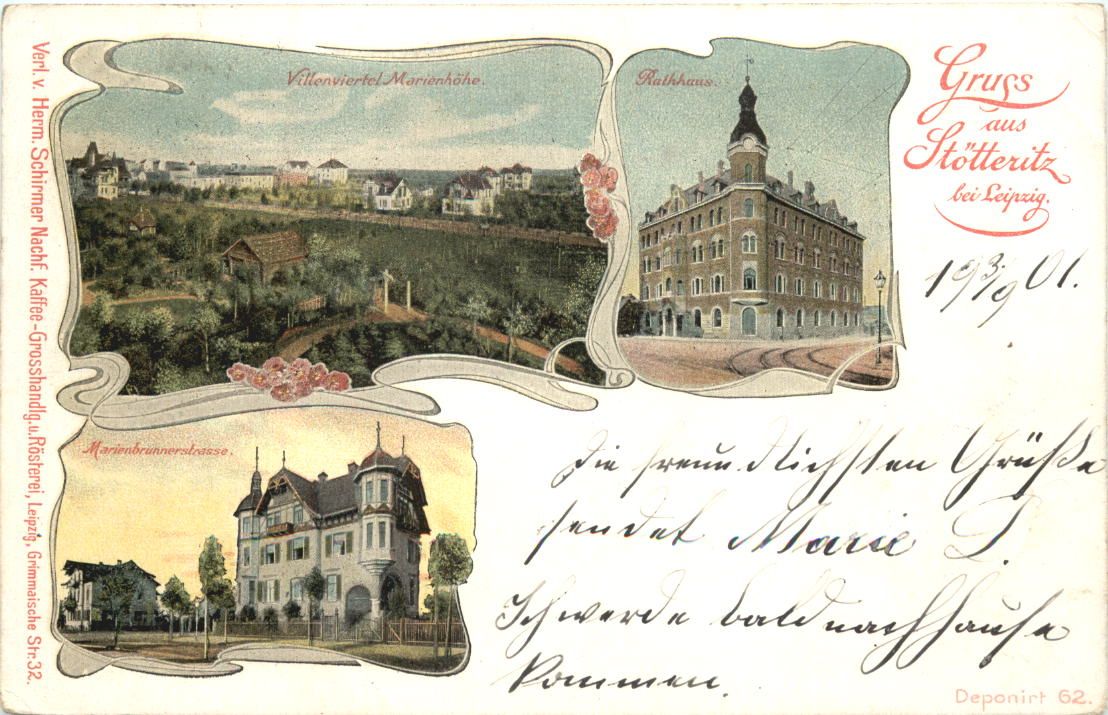 Verl. v. Herm. Schirmer Nachf. Kaffee-Grosshandlg. u. Rösterei, Leipzig, Grimmaische Str. 32.
Villenviertel Marienhöhe.
Rathhaus.
Gruss
aus
Stötteritz
bei Leipzig.
19 3/9 01.
Marienbrunnerstrasse.
Die freundlichsten Grüße
sendet Marie D.
Ich werde bald nachhause
kommen.
Deponirt 62.